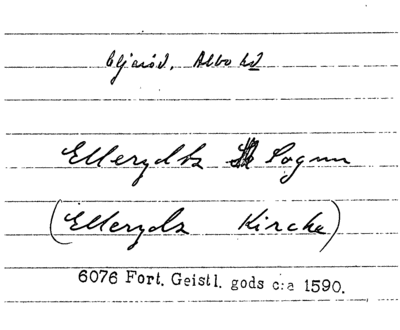 Eljaröd, Albo hd
Ellerydtz Sognn
(Ellerydz Kircke)
6076 Fort. Geistl. gods c:a 1590.